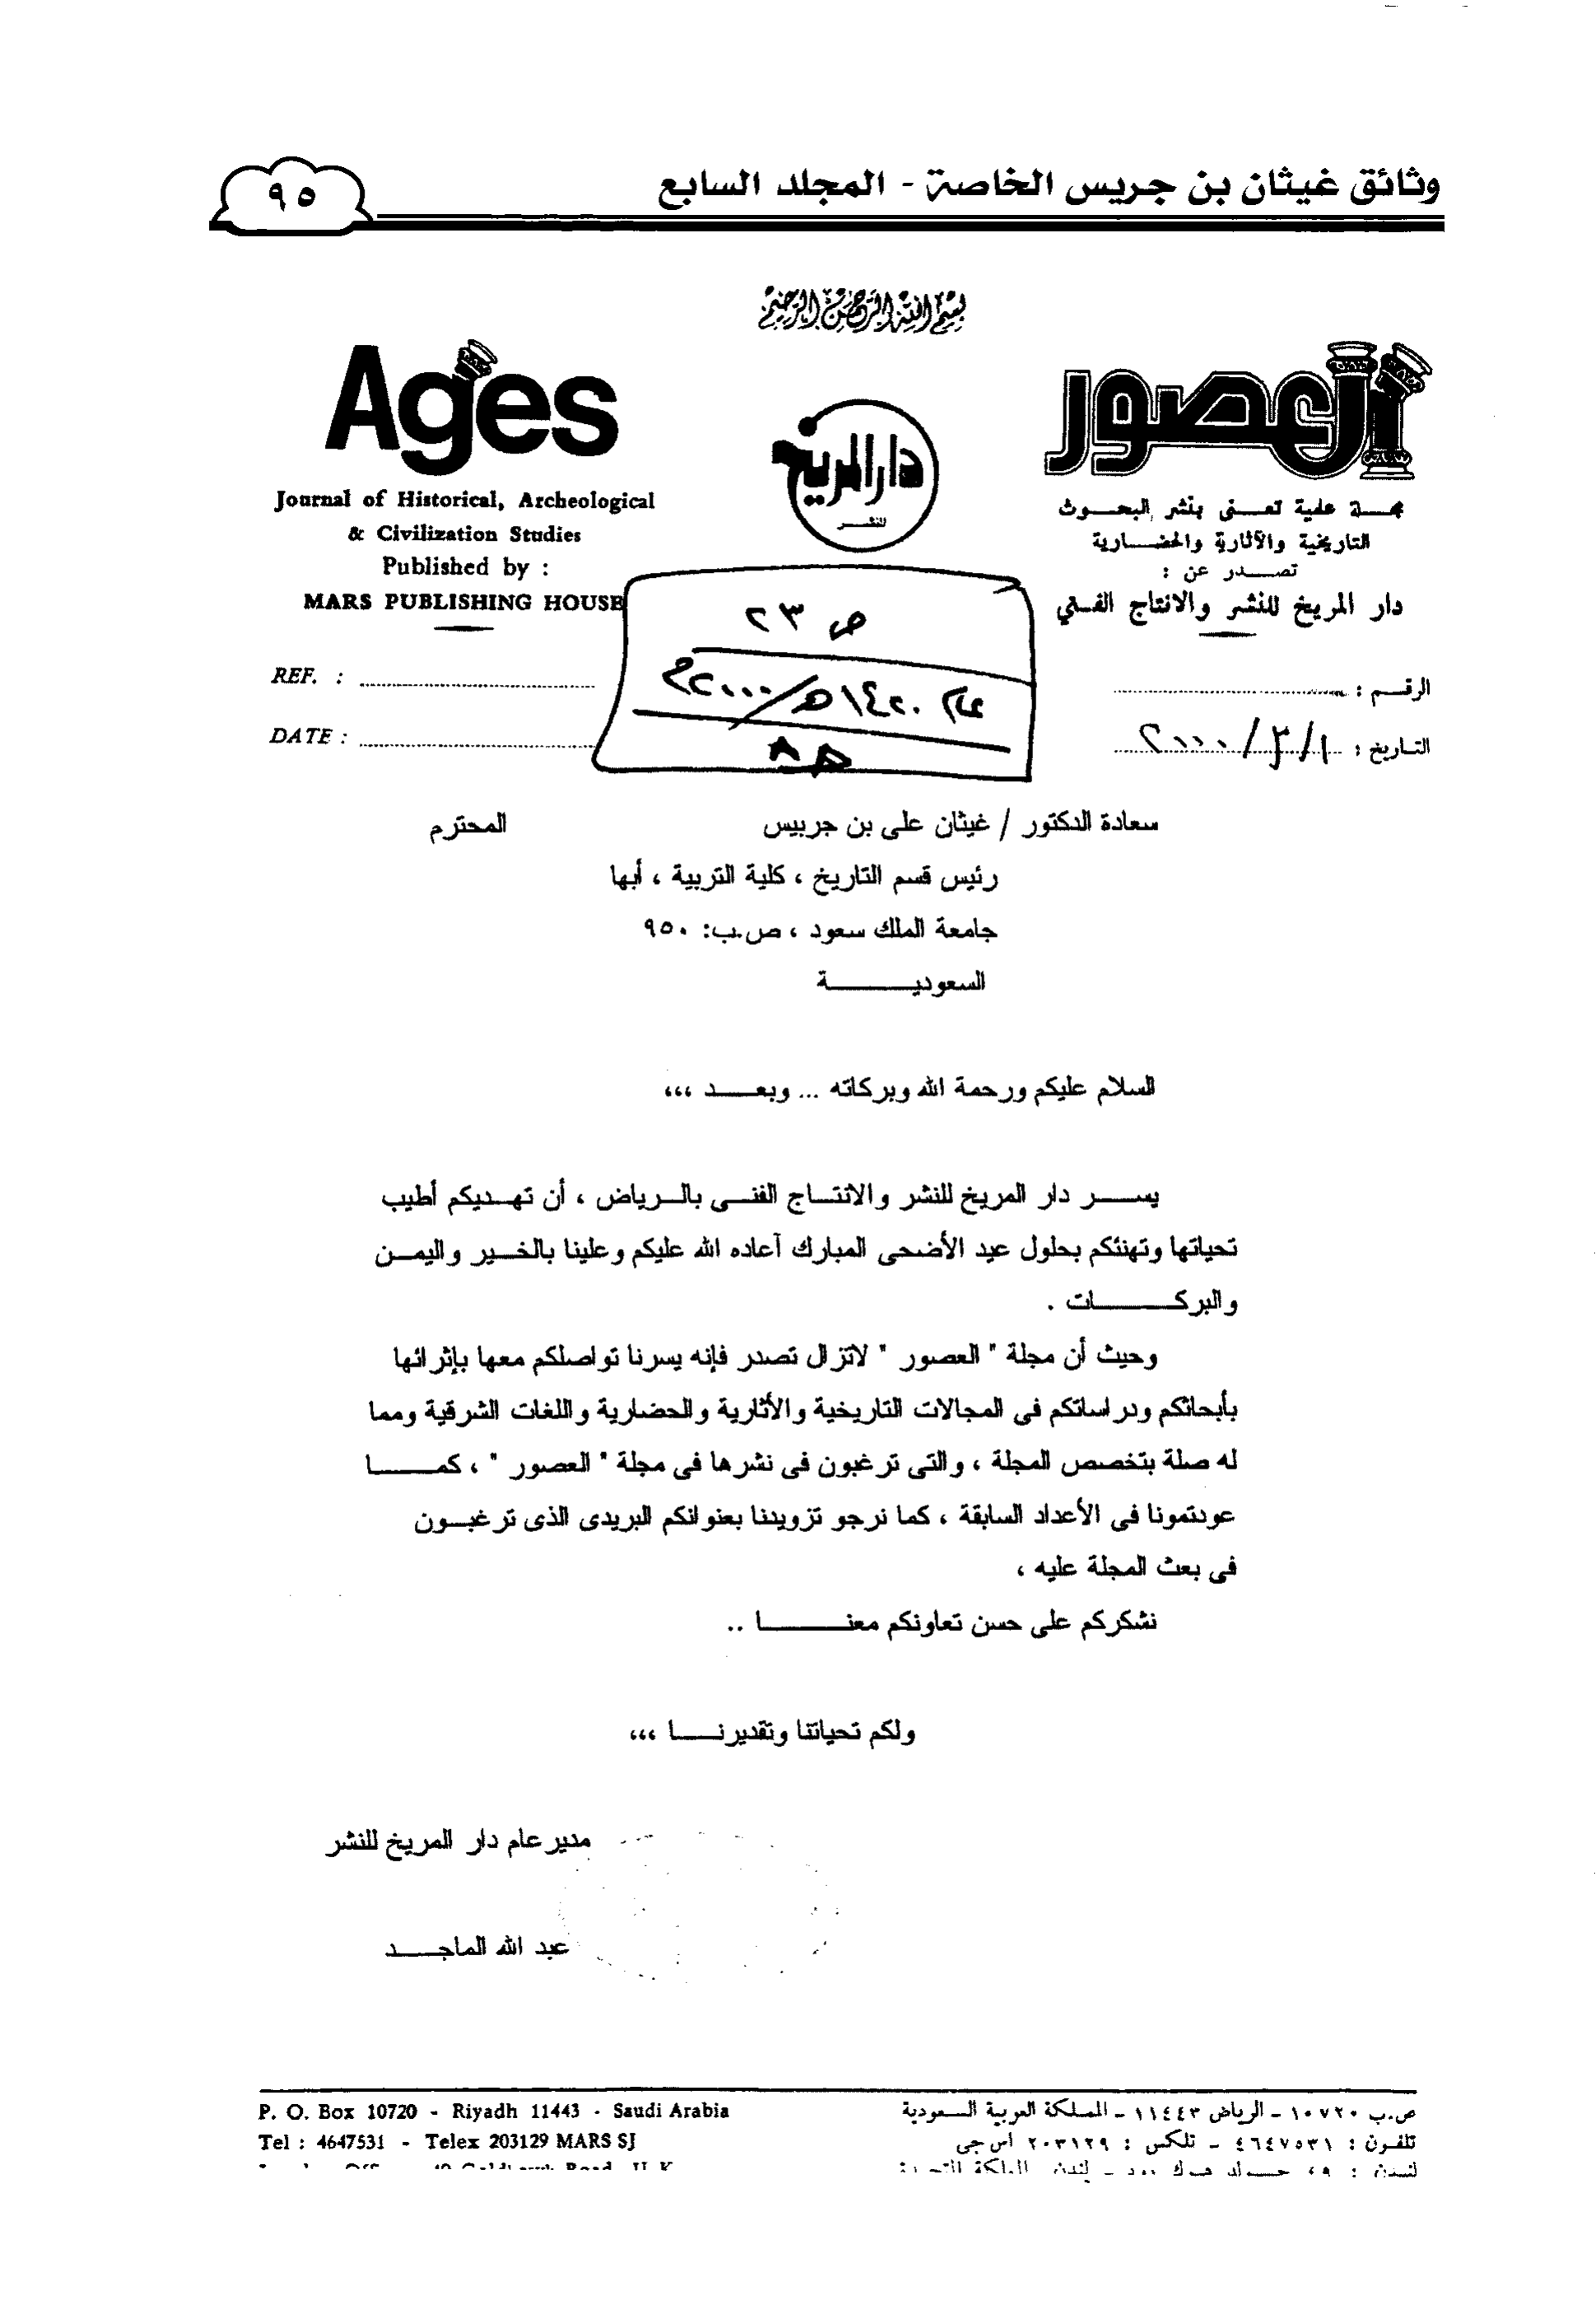 وثائق غيثان بن جريس الخاصة - المجلد السابع
٩٥
بسم الله الرحمن الرحيم
العصور
مجـــلة علمية تعــنى بنشر البحــوث
التاريخية والآثارية والحضـــارية
تصــــدر عن :
دار المريخ للنشر والانتاج الفــني
دار المريخ
للنشـــر
Ages
Journal of Historical, Archeological
& Civilization Studies
Published by :
MARS PUBLISHING HOUSE
ص ٢٣
١٤٢٠هـ/٢٠٠٠م
الرقــم :
التـاريخ : ١/٣/٢٠٠٠
REF. :
DATE :
سعادة الدكتور / غيثان على بن جربيس المحترم
رئيس قسم التاريخ ، كلية التربية ، أبها
جامعة الملك سعود ، ص.ب: ٩٥٠
السعوديـــــــة
السلام عليكم ورحمة الله وبركاته ... وبعــــد ،،،
يســــر دار المريخ للنشر والانتــاج الفنــى بالــرياض ، أن تهــديكم أطيب
تحياتها وتهنئكم بحلول عيد الأضحى المبارك آعاده الله عليكم وعلينا بالخــير واليمــن
والبركـــــــات .
وحيث أن مجلة " العصور " لاتزال تصدر فإنه يسرنا تواصلكم معها بإثرائها
بأبحاثكم ودراساتكم فى المجالات التاريخية والأثارية والحضارية واللغات الشرقية ومما
له صلة بتخصص المجلة ، والتى ترغبون فى نشرها فى مجلة " العصور " ، كمـــــا
عودتمونا فى الأعداد السابقة ، كما نرجو تزويدنا بعنوانكم البريدى الذى ترغبــون
فى بعث المجلة عليه ،
نشكركم على حسن تعاونكم معنـــــــا ..
ولكم تحياتنا وتقديرنــــا ،،،
مدير عام دار المريخ للنشر
عبد الله الماجــــد
ص.ب ١٠٧٢٠ – الرياض ١١٤٤٣ – المملكة العربية السـعودية
تلفـون : ٤٦٤٧٥٣١ – تلكس : ٢٠٣١٢٩ اس جى
P. O. Box 10720 - Riyadh 11443 - Saudi Arabia
Tel : 4647531 - Telex 203129 MARS SJ